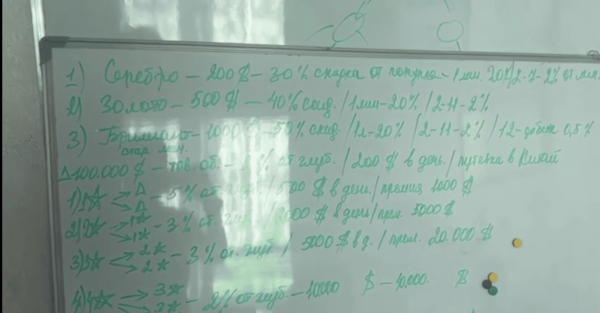 1) Серебро – 200 $ – 30% скидка от покупка – 1 лин. 20% / 2-11-2% от лин.
2) Золото – 500 $ – 40% скид. / 1 лин – 20% / 2-11-2%
3) 1000 $ – 50% скид. / 1л – 20% / 2-11-2% / 12- 0,5%
Δ 100.000 $ – тов. об. – % от глуб. / 200 $ в день / путевка в
1) 1☆ < Δ Δ – 5% от глуб. / 500 $ в день / премия 1000 $
2) 2☆ < 1☆ 1☆ – 3% от глуб. / $ в день / прем. 5000 $
3) 3☆ < 2☆ 2☆ – 3% от. глуб / 5000 $ в д. / прем. 20.000 $
4) 4☆ < 3☆ 3☆ – 2% от глуб. – 10000 $ – 40.000. $